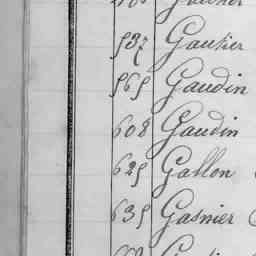 537 Gautier
565 Gaudin
608 Gaudin
625 Gallon
635 Gasnier